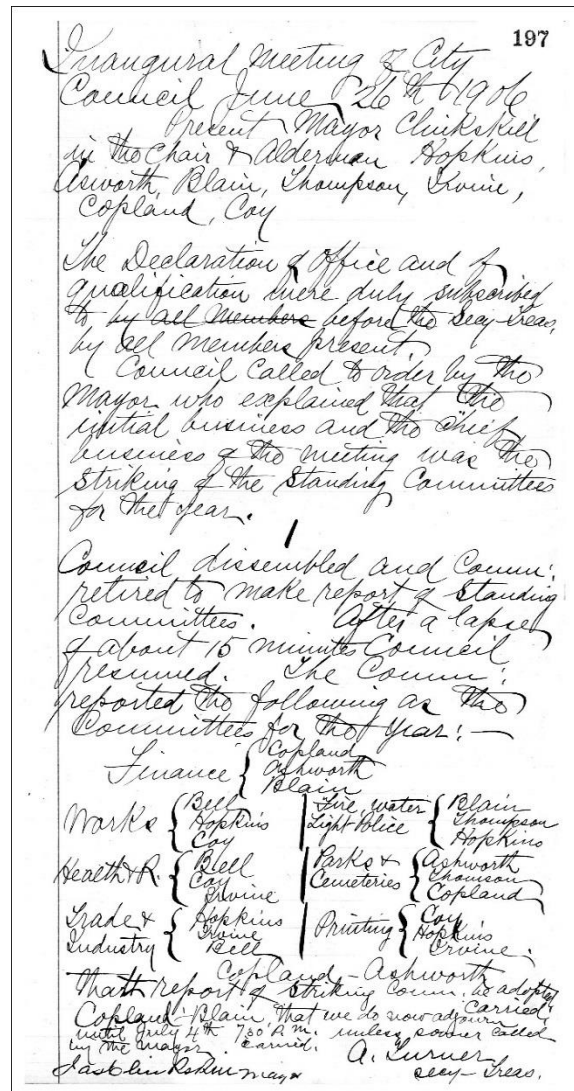 197
Inaugural meeting of City
Council June 26th 1906
Present Mayor Clinkskill
in the Chair & Alderman Hopkins,
Asworth, Blain, Thompson, Irvine,
Copland, Coy
The Declaration of Office and of
qualification were duly subscribed
to by all Members before the Secy-Treas,
by all members present
Council called to order by the
Mayor who explained that the
initial business and the chief
business of the meeting was the
striking of the Standing Committees
for the year.
Council dissembled and Comm:
retired to make report of Standing
Committees. After a lapse
of about 15 minutes Council
resumed. The Comm:
reported the following as the
Committees for the Year:—
Finance { Copland
Ashworth
Blain
Works { Bell
Hopkins
Coy
Fire, water
Light Police { Blain
Thompson
Hopkins
Health & R. { Bell
Coy
Irvine
Parks &
Cemeteries { Ashworth
Thomson
Copland
Trade &
Industry { Hopkins
Irvine
Bell
Printing { Coy
Hopkins
Irvine.
Copland – Ashworth
That report of Striking Comm. be adopted
carried.
Copland – Blain that we do now adjourn
until July 4th 7.30 P.M. unless sooner called
by the mayor carried.
A. Turner
Secy-Treas.
Jas Clinkskill mayor